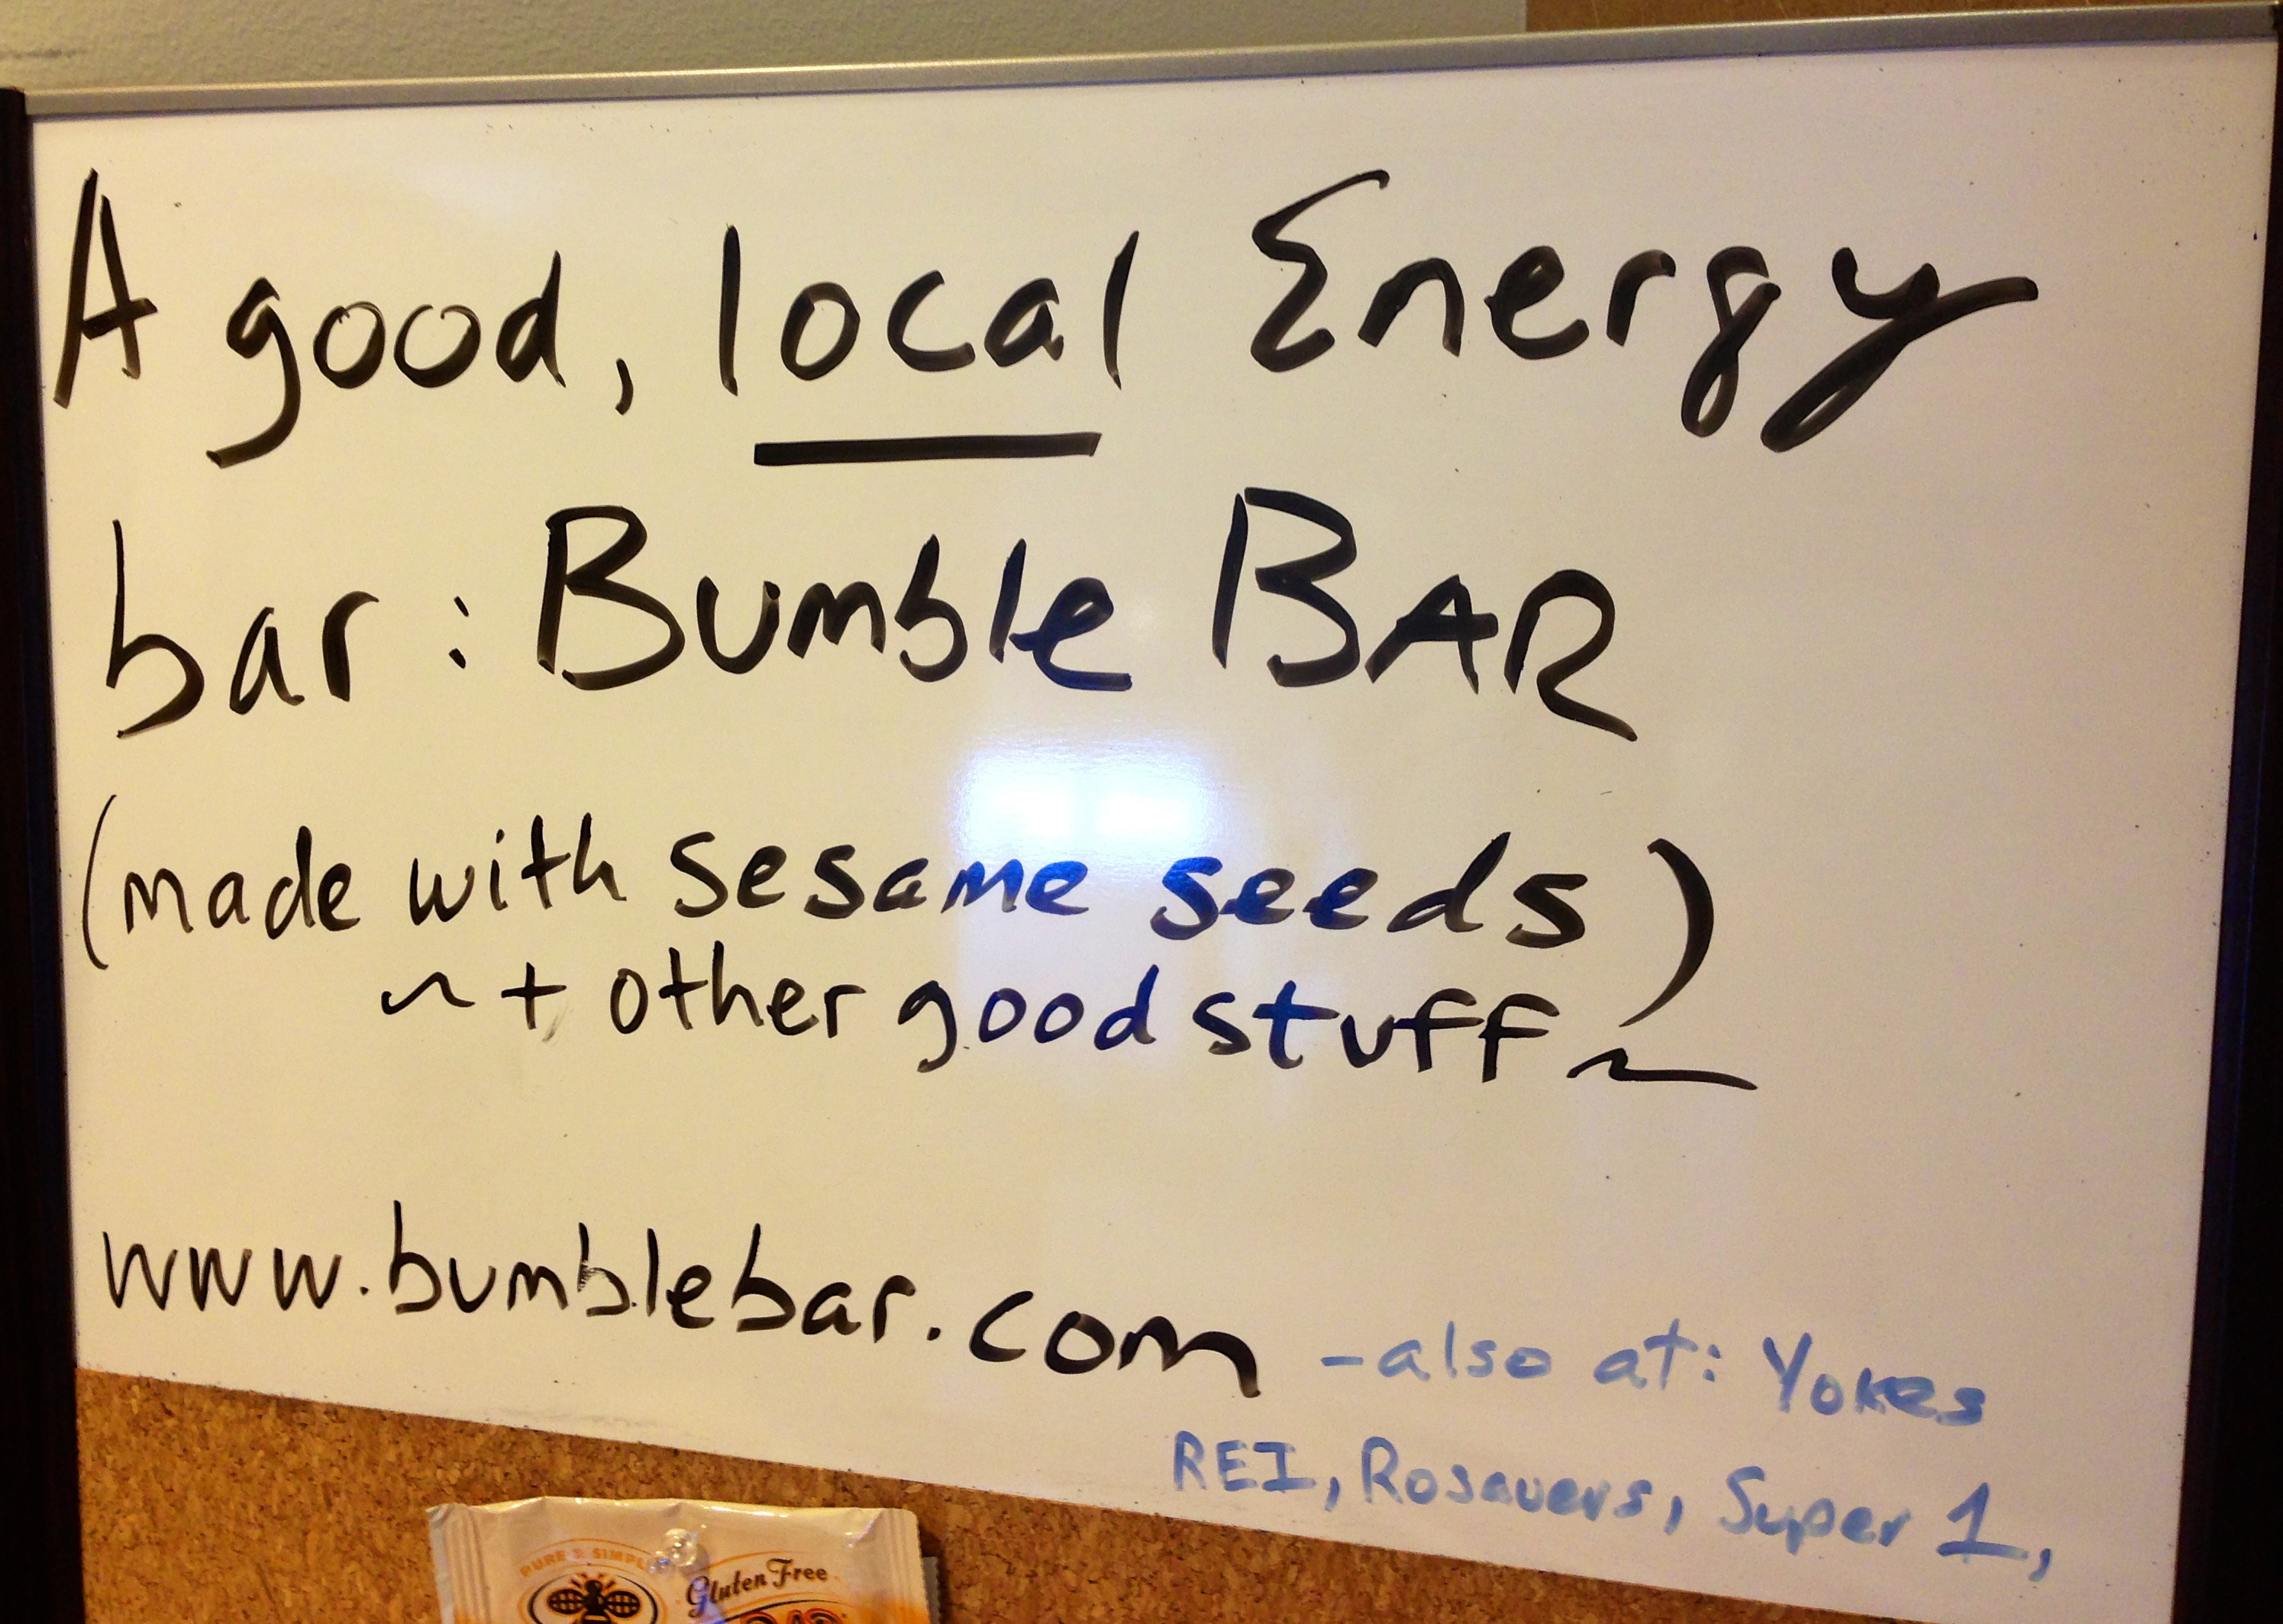 A good, local Energy
bar: Bumble BAR
(made with sesame seeds)
~ + other good stuff ~
www.bumblebar.com
-also at: Yokes
REI, Rosauers, Super 1,
PURE & SIMPLE
Gluten Free